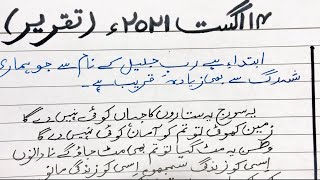 ۱۴ اگست ۲۰۲۱ء (تقریر)
ابتداء ہے رب جلیل کے نام سے جو ہماری
شہ رگ سے بھی زیادہ قریب ہے۔
یہ سورج یہ ستاروں کا جہاں کوئی نہیں دے گا
زمین کھوئی تو تم کو آسماں کوئی نہیں دے گا
وطن یہ مٹ گیا تو تم بھی مٹ جاؤ گے نادانوں
اسی کو زندگی سمجھو اسی کو زندگی مانو